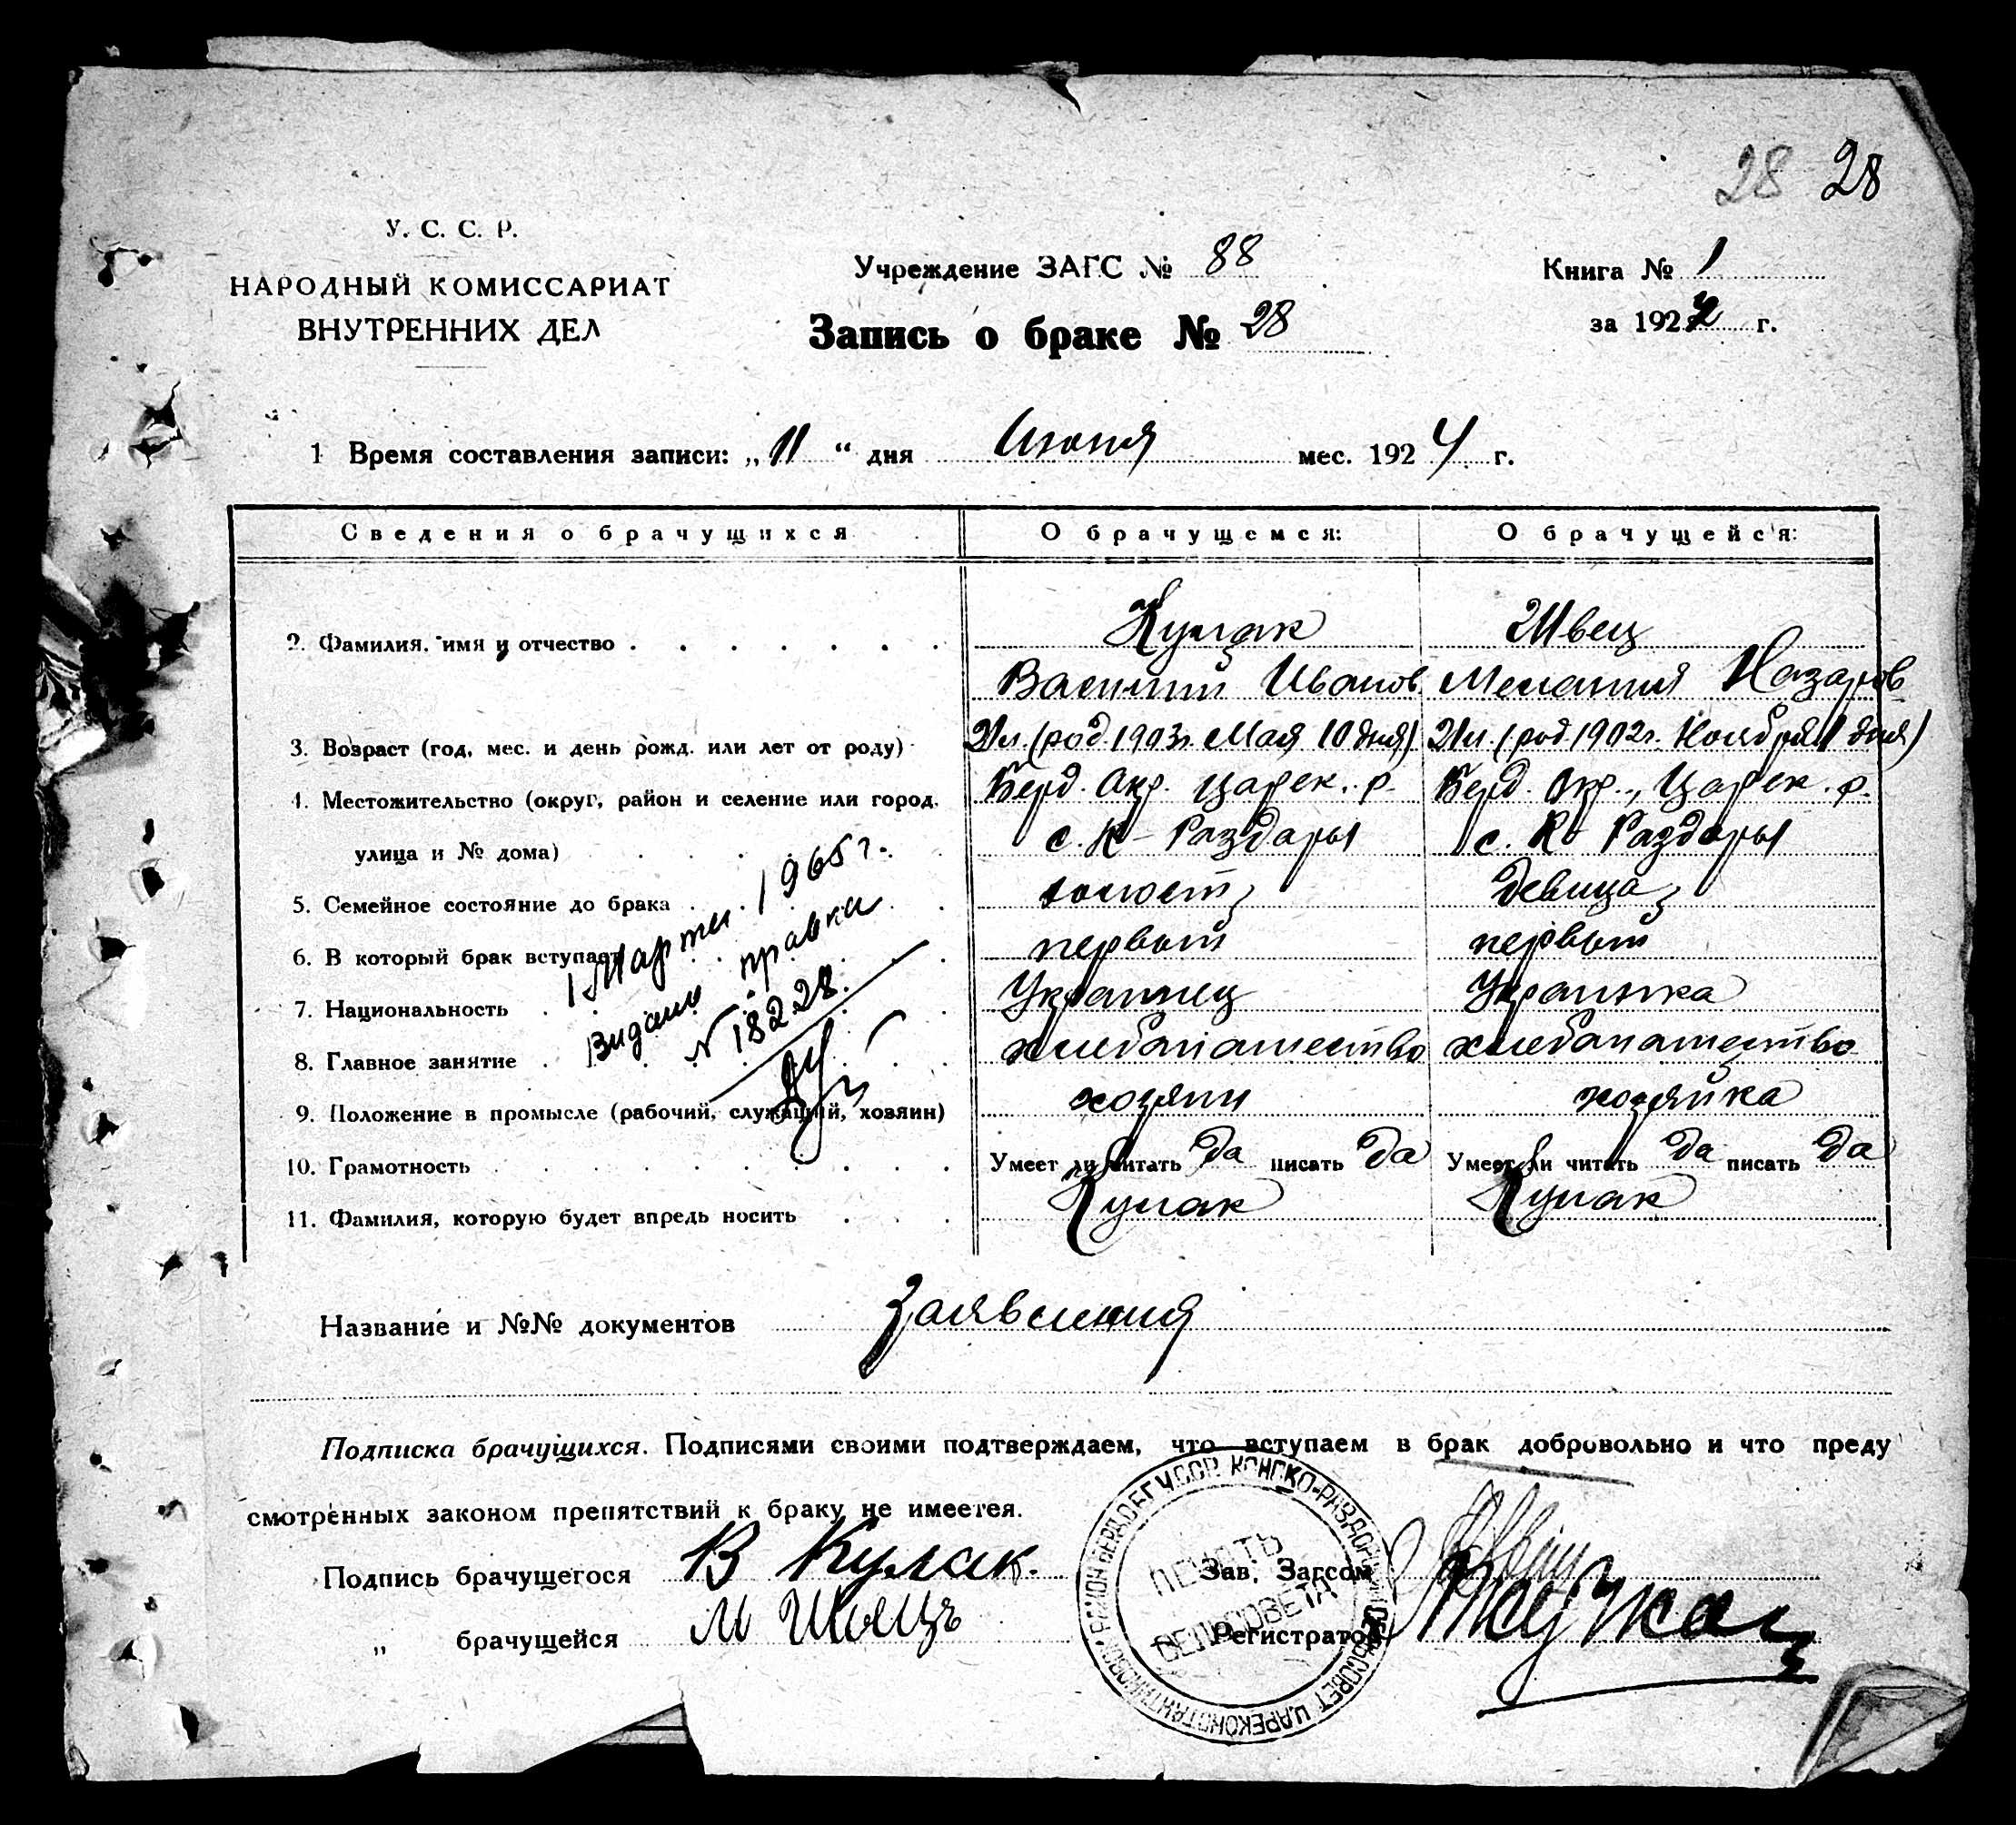 28 28
У. С. С. Р.
НАРОДНЫЙ КОМИССАРИАТ
ВНУТРЕННИХ ДЕЛ
Учреждение ЗАГС № 88
Запись о браке № 28
Книга № 1
за 1924 г.
1 Время составления записи: „ 11 “ дня Июня мес. 1924 г.
Сведения о брачущихся О брачущемся: О брачущейся:
2. Фамилия, имя и отчество Кулак Швец
Василий Иванов Мелания Назаров
3. Возраст (год, мес. и день рожд. или лет от роду) 21 л. (род 1903 г. Мая 10 дня) 21 л. (род 1902 г. Ноября 1 дня)
4. Местожительство (округ, район и селение или город, Берд. Окр. Царек. р. Берд. Окр., Царек. р.
улица и № дома) с. К-Раздоры с. К-Раздоры
5. Семейное состояние до брака холост девица
6. В который брак вступает первый первый
7. Национальность Украинец Украинка
8. Главное занятие хлебопашество хлебопашество
9. Положение в промысле (рабочий, служащий, хозяин) хозяин хозяйка
10. Грамотность Умеет ли читать да писать да Умеет ли читать да писать да
11. Фамилия, которую будет впредь носить Кулак Кулак
1 Марта 1965 г.
правка
№ 18228.
Название и №№ документов Заявления
Подписка брачущихся. Подписями своими подтверждаем, что вступаем в брак добровольно и что преду
смотренных законом препятствий к браку не имеется.
Подпись брачущегося В Кулак.
„ брачущейся М Швецъ
Зав. Загсом
Регистратор
ПЕЧАТЬ
СЕЛЬСОВЕТА